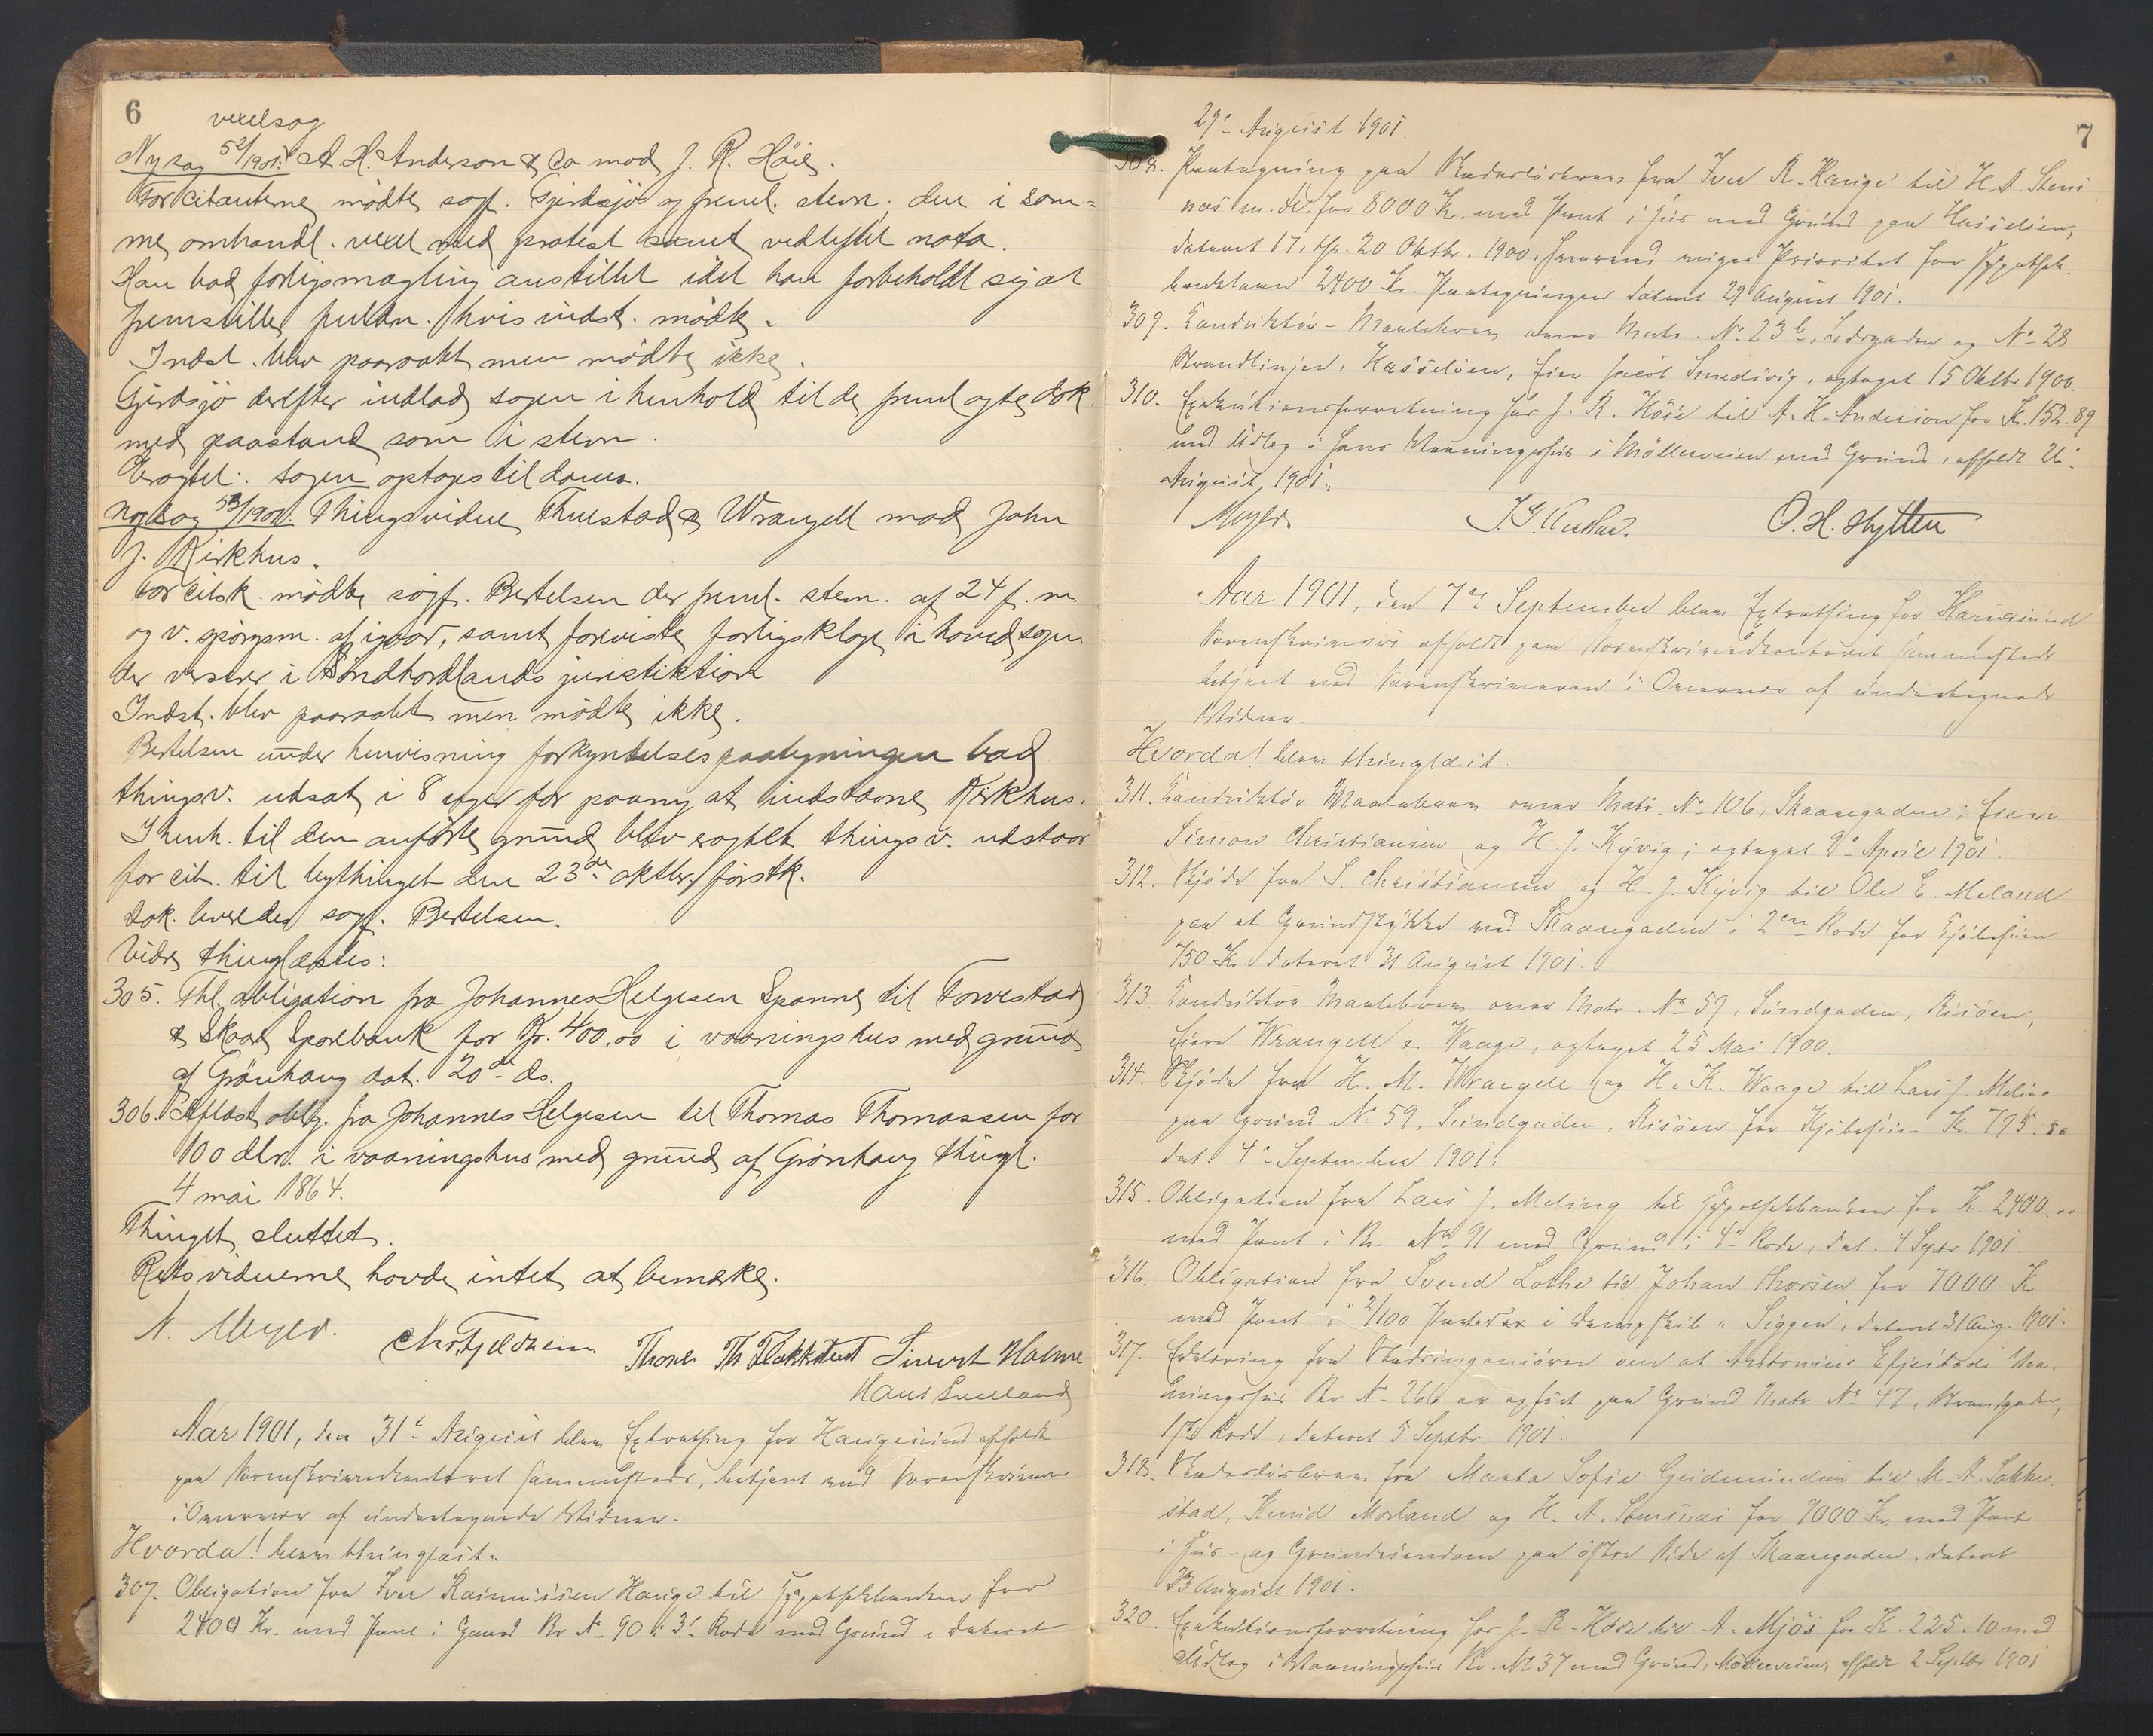 6
vexelsag
Ny sag 52/1901. A. H. Anderson & Co mod J. R. Höie.
For citanterne mødte sagf. Gjerdsjö og freml. stevn. den i sam=
me omhandl. vexel med protest samt vedheftet nota.
Han bad forligsmægling anstillet idet han forbeholdt sig at
fremstille fuldm. hvis indst. mødte.
Indst. blev paaraabt men mødte ikke.
Gjerdsjö derefter indlod sagen i henhold til de fremlagte dok.
med paastand som i stevn.
Eragtet: sagen optages til doms.
Ny sag 53/1901. Thingsvidne Thuestad & Wrangell mod John
J. Kirkhus.
For citsk. mødte sagf. Bertelsen der freml. stevn. af 24 f. m.
og v. spørgsm. af igaar, samt foreviste forligsklage i hovedsagen
der verserer i Söndhordlands jurisdiktion
Indst. blev paaraabt men mødte ikke.
Bertelsen under henvisning forkyndelsespaategningen bad
thingsv. udsat i 8 uger for paany at indstævne Kirkhus.
I henh. til den anførte grund blev eragtet thingsv. udstaar
for cit. til bythinget den 23de oktbr. førstk.
Dok. leveredes sagf. Bertelsen.
Videre thinglæstes:
305. Thl. obligation fra Johannes Helgesen Spanne til Torvestad
& Skaare Sparebank for Kr. 400.00 i vaaningshus med grund
af Grönhaug dat. 20de ds.
306. Aflæst oblig. fra Johannes Helgesen til Thomas Thomassen for
100 dlr. i vaaningshus med grund af Grönhaug thingl.
4 mai 1864.
Thinget sluttet.
Retsvidnerne havde intet at bemerke.
N. Meyer. Chr. Fjeldheim Thore Th. Flokketvedt Sivert Holme
Hans Sveeland
Aar 1901, den 31te August blev Extrathing for Haugesund afholdt
paa Sorenskriverkontoret sammesteds, betjent med Sorenskriveren
i Overvær af undertegnede Vidner.
Hvorda! blev thinglæst.
307. Obligation fra Iver Rasmussen Hauge til Hypothekbanken for
2400 Kr. med Pant i Gaard Br No 90 i 3die Rode med Grund, dateret
7
29de August 1901.
308. Paategning paa Skadesløsbrev fra Iver R. Hauge til H. A. Stens
næs m. fl. for 8000 Kr. med Pant i Hus med Grund paa Hasseløen,
dateret 17, thl. 20 Oktbr. 1900, hvorved viges Prioritet for Hypothek-
banklaan 2400 Kr. Paategningen dateret 29 August 1901.
309. Konduktør-Maalebrev over Matr. No 23b, Lodegaden og No 28
Strandlinjen, Hasseløen, Eier Jacob Smedsvig, optaget 15 Oktbr 1900.
310. Exekutionsforretning hos J. R. Höie til A. H. Anderson for Kr. 152.89
med Udlæg i hans Vaaningshus i Möllerveien med Grund, afholdt 26
August 1901.
Meyer. O. H. Hytten
Aar 1901, den 7de September blev Extrathing for Haugesund
Sorenskriveri afholdt paa Sorenskriverkontoret sammesteds
betjent med Sorenskriveren i Overvær af undertegnede
Vidner.
Hvorda! blev thinglæst.
311. Konduktør Maalebrev over Matr. No 106, Skaaregaden, Eiere
Simon Christiansen og H. J. Kyvig; optaget 9de April 1901.
312. Skjøde fra S. Christiansen og H. J. Kyvig til Ole E. Meland
paa et Grundstykke ved Skaaregaden i 2den Rode for Kjøbesum
750 Kr. dateret 31 August 1901.
313. Konduktør Maalebrev over Matr. No 59, Sundgaden, Risöen,
Eiere Wrangell & Waage, optaget 25 Mai 1900.
314. Skjøde fra H. M. Wrangell og H. K. Waage til Lars J. Meling
paa Grund No 59, Sundgaden, Risöen for Kjøbesum Kr. 795.50
dat. 4de September 1901.
315. Obligation fra Lars J. Meling til Hypothekbanken for Kr. 2400.00
med Pant i Br. No 91 med Grund i 4de Rode, dat. 4 Septbr 1901.
316. Obligation fra Svend Lothe til Johan Thorsen for 7000 Kr.
med Pant i 2/100 Parter i Dampskib "Siggen", dateret 31 Aug. 1901.
317. Erklæring fra Stadsingeniøren om at Antonius Espestads Vaa-
ningshus Br No 266 er opført paa Grund Matr No 47, Strandgaden,
1ste Rode, dateret 5 Septbr. 1901.
318. Skadesløsbrev fra Marta Sofie Gudmundsen til M. A. Sakke-
stad, Knud Morland og H. A. Stensnæs for 9000 Kr. med Pant
i Hus- og Grundeiendom paa østre Side af Skaaregaden, dateret
23 August 1901.
320. Exekutionsforretning hos J. R. Höie til A. Mjös for Kr. 225.10 med
Udlæg i Vaaningshus Br. No 37 med Grund, Möllerveien, afholdt 2 Septbr 1901